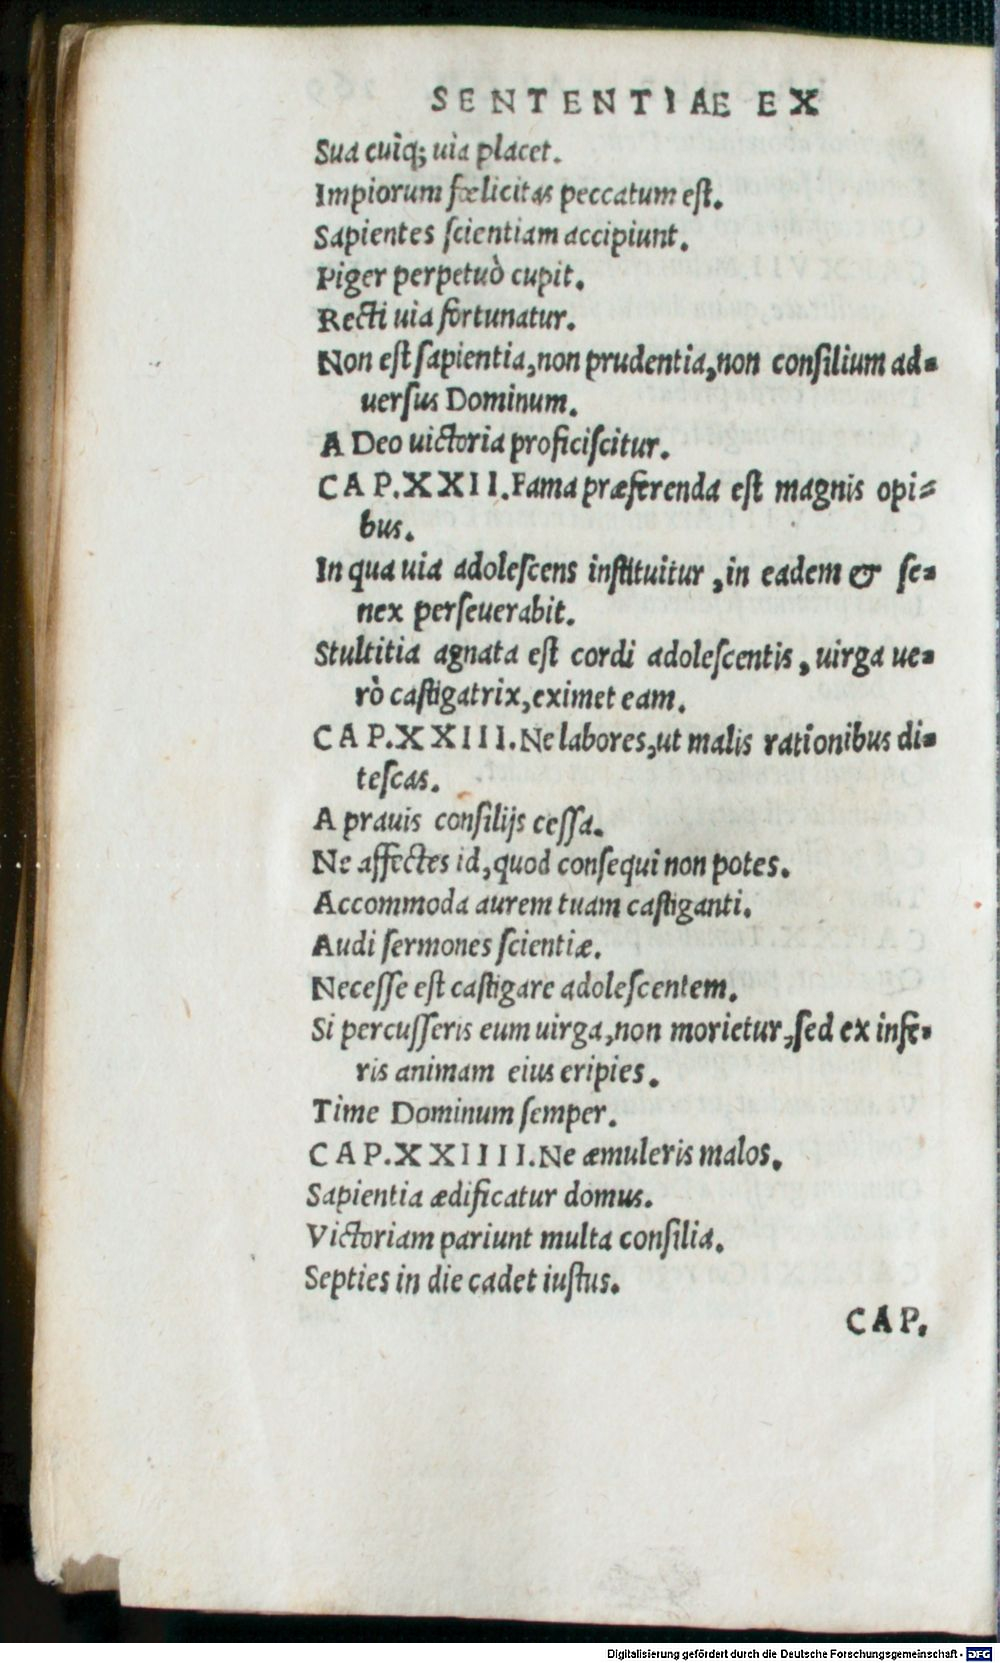 SENTENTIAE EX
Sua cuiq; uia placet.
Impiorum fœlicitas peccatum est.
Sapientes scientiam accipiunt.
Piger perpetuò cupit.
Recti uia fortunatur.
Non est sapientia, non prudentia, non consilium ad-
uersus Dominum.
A Deo uictoria proficiscitur.
CAP. XXII. Fama præferenda est magnis opi-
bus.
In qua uia adolescens instituitur, in eadem & se-
nex perseuerabit.
Stultitia agnata est cordi adolescentis, uirga ue-
rò castigatrix, eximet eam.
CAP. XXIII. Ne labores, ut malis rationibus di-
tescas.
A prauis consilijs cessa.
Ne affectes id, quod consequi non potes.
Accommoda aurem tuam castiganti.
Audi sermones scientiæ.
Necesse est castigare adolescentem.
Si percusseris eum uirga, non morietur, sed ex infe-
ris animam eius eripies.
Time Dominum semper.
CAP. XXIIII. Ne æmuleris malos.
Sapientia ædificatur domus.
Victoriam pariunt multa consilia.
Septies in die cadet iustus.
CAP.
Digitalisierung gefördert durch die Deutsche Forschungsgemeinschaft - DFG